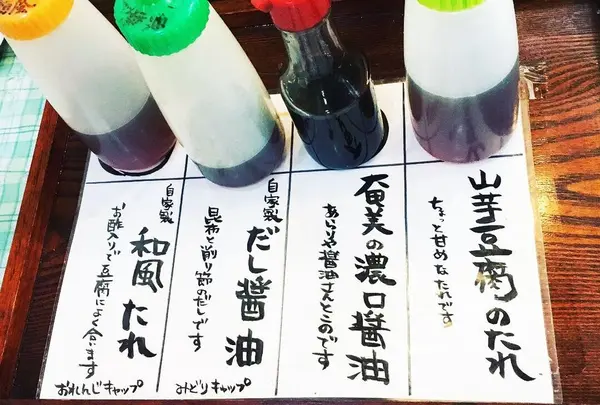 山芋豆腐のたれ
ちょっと甘めなたれです
奄美の濃口醤油
あらりや醤油さんとこのです
自家製
だし醤油
昆布と削り節のだしです
みどりキャップ
自家製
和風たれ
お酢入りで豆腐によく合います
おれんじキャップ